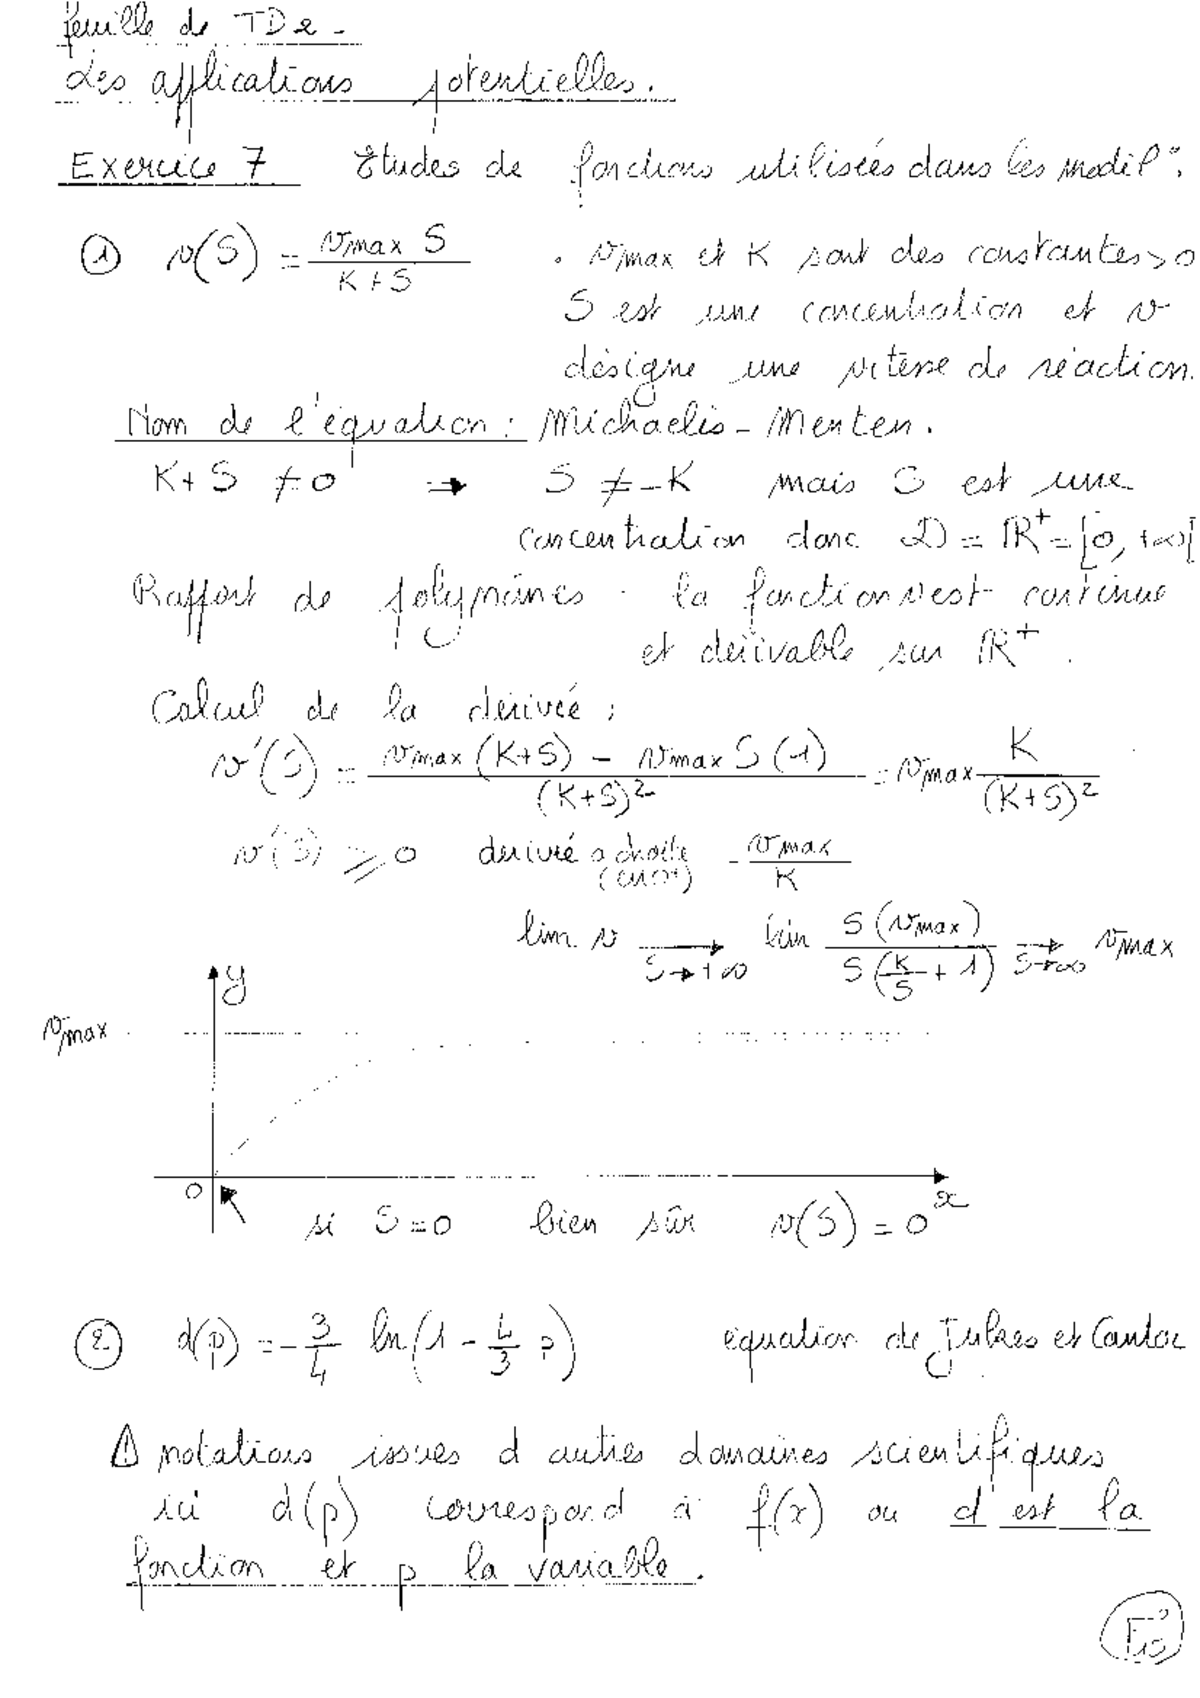 feuille de TD2 -
Les applications potentielles.
Exercice 7 Etudes de fonctions utilisées dans les modél°.
① v(S) = vmax S / K + S . vmax et K sont des constantes > 0
S est une concentration et v
désigne une vitesse de réaction.
Nom de l'équation : Michaelis - Menten.
K + S ≠ 0 → S ≠ -K mais S est une
concentration donc D = ℝ+ = [0, +∞[
Rapport de polynômes . la fonction v est continue
et dérivable sur ℝ+.
Calcul de la dérivée :
v'(S) = vmax (K+S) - vmax S (1) / (K+S)² = vmax K / (K+S)²
v'(S) ⩾ 0 dérivée à droite (en 0+) = vmax / K
lim v S→+∞ lim S (vmax) / S (K/S + 1) S→∞ vmax
y
vmax
0
x
si S = 0 bien sûr v(S) = 0
② d(p) = - 3/4 ln(1 - 4/3 p) équation de Jukes et Cantor
⚠ notations issues d'autres domaines scientifiques
ici d(p) correspond à f(x) où d est la
fonction et p la variable.